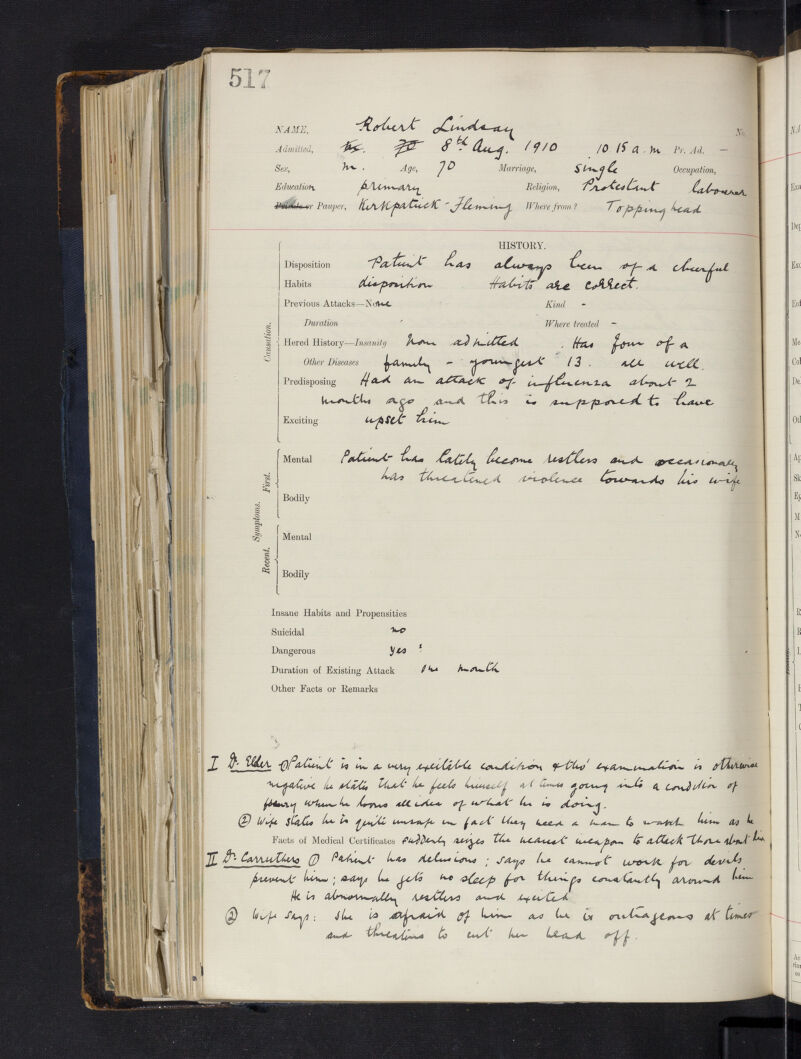 517
NAME, Robert Lindsay No.
Admitted, 8th Aug. 1910 10.15 a.m Pr. Ad. -
Sex, m. Age, 70 Marriage, Single Occupation,
Education primary Religion, Protestant labourer
Private or Pauper, Kirkpatrick-Fleming Where from? Topping head
HISTORY.
Disposition Patient has always been of a cheerful
Habits disposition. Habits are correct.
Previous Attacks—None Kind -
Duration Where treated -
Causation.
Hered History—Insanity None admitted. Has four of a
Other Diseases family - youngest 13. all well.
Predisposing Had an attack of influenza about 2
months ago and this is supposed to have
Exciting upset him
Symptoms.
First.
Mental Patient has lately become restless and occasionally
has threatened violence towards his wife
Bodily
Recent.
Mental
Bodily
Insane Habits and Propensities
Suicidal no
Dangerous yes
Duration of Existing Attack one month
Other Facts or Remarks
I Dr. Elder ① Patient is in a very excitable condition & tho' examination is otherwise
negative he states that he feels himself at times going into a condition of
when he loses all idea of what he is doing.
② Wife states he is quite unsafe in fact they need a man to watch him as he
Facts of Medical Certificates suddenly seizes the nearest weapon to attack those about him
II Dr. Carruthers ① Patient has delusions; says he cannot work for devils
prevent him; says he gets no sleep for things constantly around him
He is abnormally restless and excited
② Wife says: she is afraid of him as he is outrageous at times
and threatens to cut her head off.